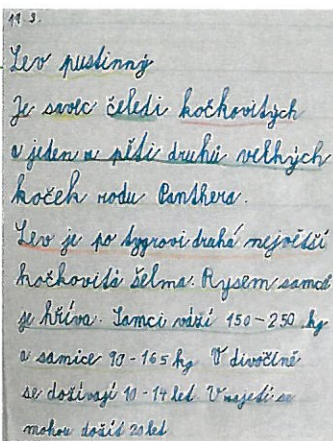 19. 3.
Lev pustinný
Je savec čeledi kočkovitých
a jeden z pěti druhů velkých
koček rodu Panthera.
Lev je po tygrovi druhá největší
kočkovitá šelma. Rysem samců
je hříva. Samci váží 150-250 kg
a samice 90-165 kg. V divočině
se dožívají 10-14 let. V zajetí se
mohou dožít 20 let